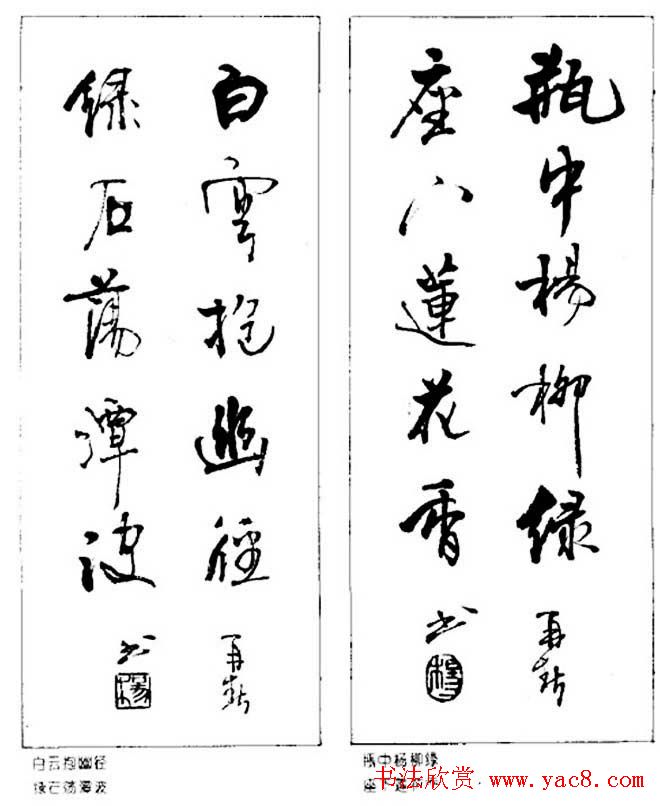 瓶中楊柳綠
再春
座下蓮花香
书
楊
白雲抱幽徑
再春
綠石蕩潭波
书
楊
白云抱幽径
绿石荡潭波
瓶中杨柳绿
座下莲
书法欣赏 www.yac8.com